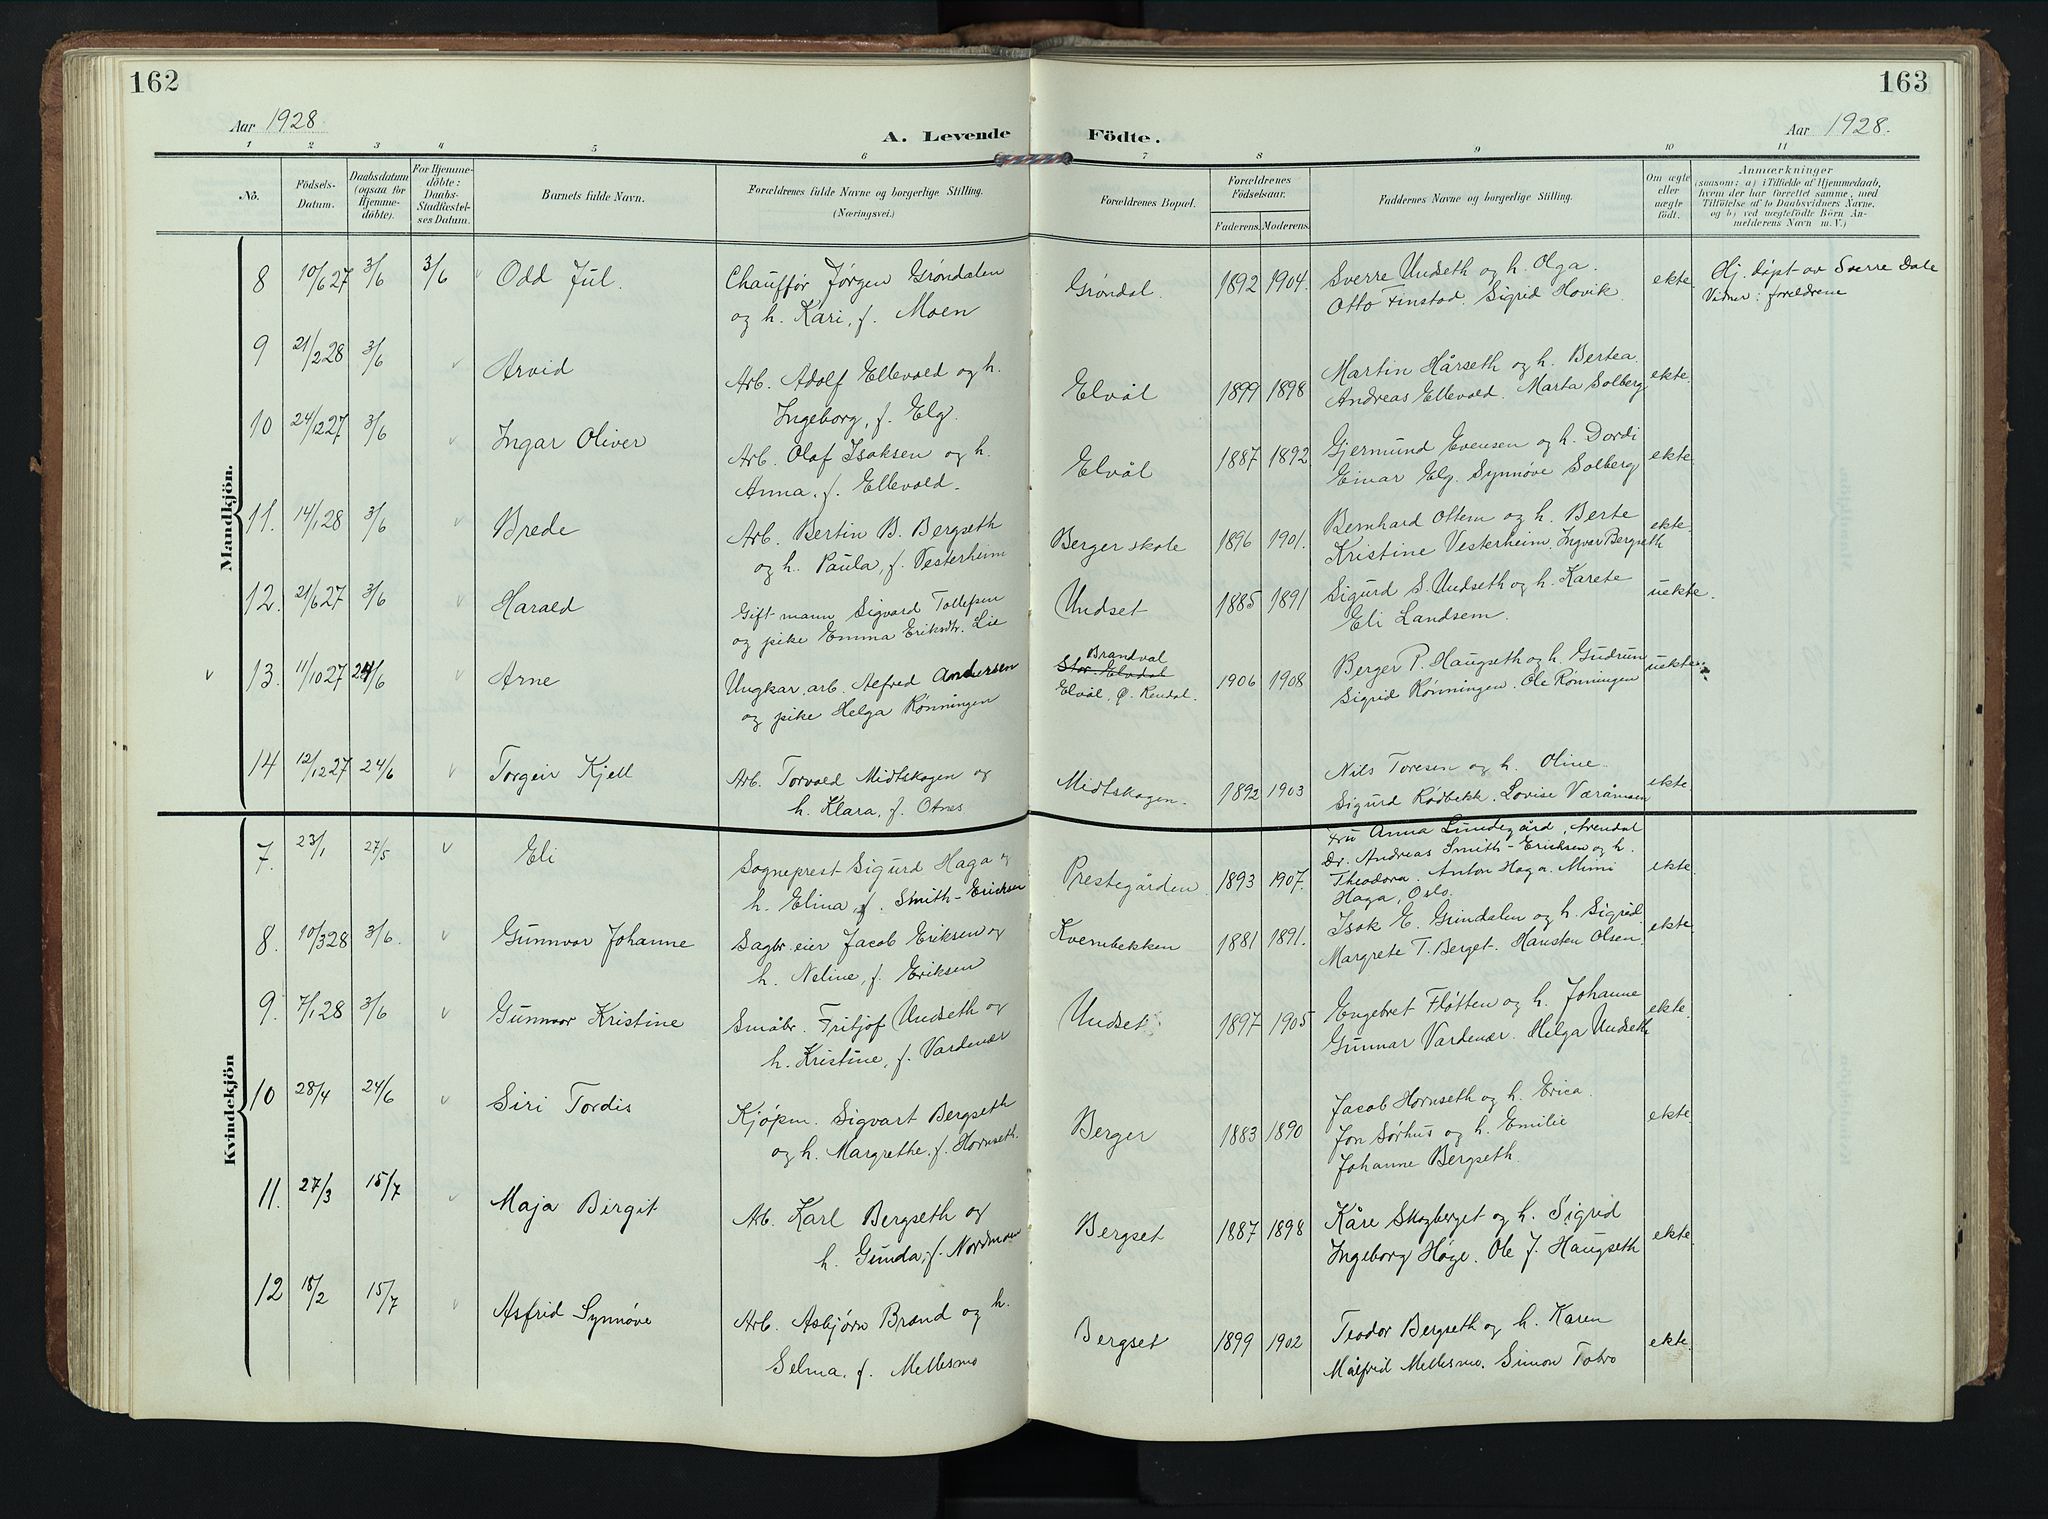 162
163
Aar 1928
A. Levende Födte.
Aar 1928.
1 2 3 4 5 6 7 8 9 10 11
No. Födsels-Datum. Daabsdatum (ogsaa for Hjemmedöbte). For Hjemmedöbte: Daabs-Stadfæstelses Datum. Barnets fulde Navn. Forældrenes fulde Navne og borgerlige Stilling. (Næringsvei.) Forældrenes Bopæl. Forældrenes Födselsaar. Faderens. Moderens. Faddernes Navne og borgerlige Stilling. Om ægte eller uægte födt. Anmærkninger (saasom: a) i Tilfælde af Hjemmedaab, hvem der har forrettet samme, med Tilföielse af to Daabsvidners Navne, og b) ved uægtefödte Börn Anmelderens Navn m. V.)
Mandkjön.
8 10/6 27 3/6 3/6 Odd Jul. Chauffør Jørgen Grøndalen Grøndal. 1892 1904. Sverre Undseth og h. Olga. ekte Hj. døpt av Sverre Dale
og h. Kari, f. Moen Otto Finstad. Sigrid Hovik. Vidner: foreldrene
9 21/2 28 3/6 Arvid Arb. Adolf Ellevold og h. Elvål 1899 1898 Martin Hårseth og h. Bertea. ekte.
Ingeborg, f. Elg. Andreas Ellevold. Marta Solberg
10 24/12 27 3/6 Ingar Oliver Arb. Olaf Isaksen og h. Elvål 1887 1892 Gjermund Evensen og h. Dordi ekte.
Anna, f. Ellevold. Einar Elg. Synnøve Solberg
11. 14/1 28 3/6 Brede Arb. Bertin B. Bergseth Berger skole 1896 1901. Bernhard Ottem og h. Berte ekte.
og h. Paula, f. Vesterheim Kristine Vesterheim. Ingvar Bergseth
12. 21/6 27 3/6 Harald Gift mann Sigvard Tollefsen Undset 1885 1891 Sigurd S. Undseth og h. Karete uekte.
og pike Emma Eriksdtr. Lie Eli Landsem.
13. 11/10 27 24/6 Arne Ungkar, arb. Alfred Andersen Brandval 1906 1908 Berger P. Haugseth og h. Gudrun uekte.
og pike Helga Rønningen Stor-Elvdal Elvål, Ø. Rendal. Sigrid Rønningen. Ole Rønningen
14 12/12 27 24/6 Torgeir Kjell Arb. Torvald Midtskogen og Midtskogen. 1892 1903 Nils Toresen og h. Oline. ekte
h. Klara, f. Otnes Sigurd Rødbekk. Lovise Væråmoen
Kvindekjön
7. 23/1 27/5 Eli Sogneprest Sigurd Haga og Prestegården 1893 1907. Fru Anna Lundegård, Arendal ekte.
h. Elina, f. Smith-Erichsen Dr. Andreas Smith-Erichsen og h.
Theodora. Anton Haga. Mimi
Haga, Oslo.
8. 10/3 28 3/6. Gunnvor Johanne Sagbr. eier Jacob Eriksen og Kvernbekken 1881 1891. Isak E. Grindalen og h. Sigrid. ekte.
h. Neline, f. Eriksen Margrete T. Berget. Hansten Olsen.
9. 7/1 28 3/6 Gunnvor Kristine Småbr. Fritjof Undseth og Undset 1897 1905 Engebret Fløtten og h. Johanne ekte.
h. Kristine, f. Vardenær Gunnar Vardenær. Helga Undseth
10 28/4 24/6 Siri Tordis Kjøpm. Sigvart Bergseth Berger 1883 1890 Jacob Hornseth og h. Erica. ekte
og h. Margrethe. f. Hornseth. Jon Sørhus og h. Emilie
Johanne Bergseth.
11. 27/3 15/7 Maja Birgit Arb. Karl Bergseth og Bergset 1887 1898 Kåre Skogberget og h. Sigrid ekte
h. Gunda, f. Nordmoen Ingeborg Høge. Ole J. Haugseth
12 18/2 15/7 Asfrid Synnøve Arb. Asbjørn Brænd og h. Bergset 1899 1902 Teodor Bergseth og h. Karen ekte.
Selma, f. Mellesmo Målfrid Mellesmo. Simon Tobro